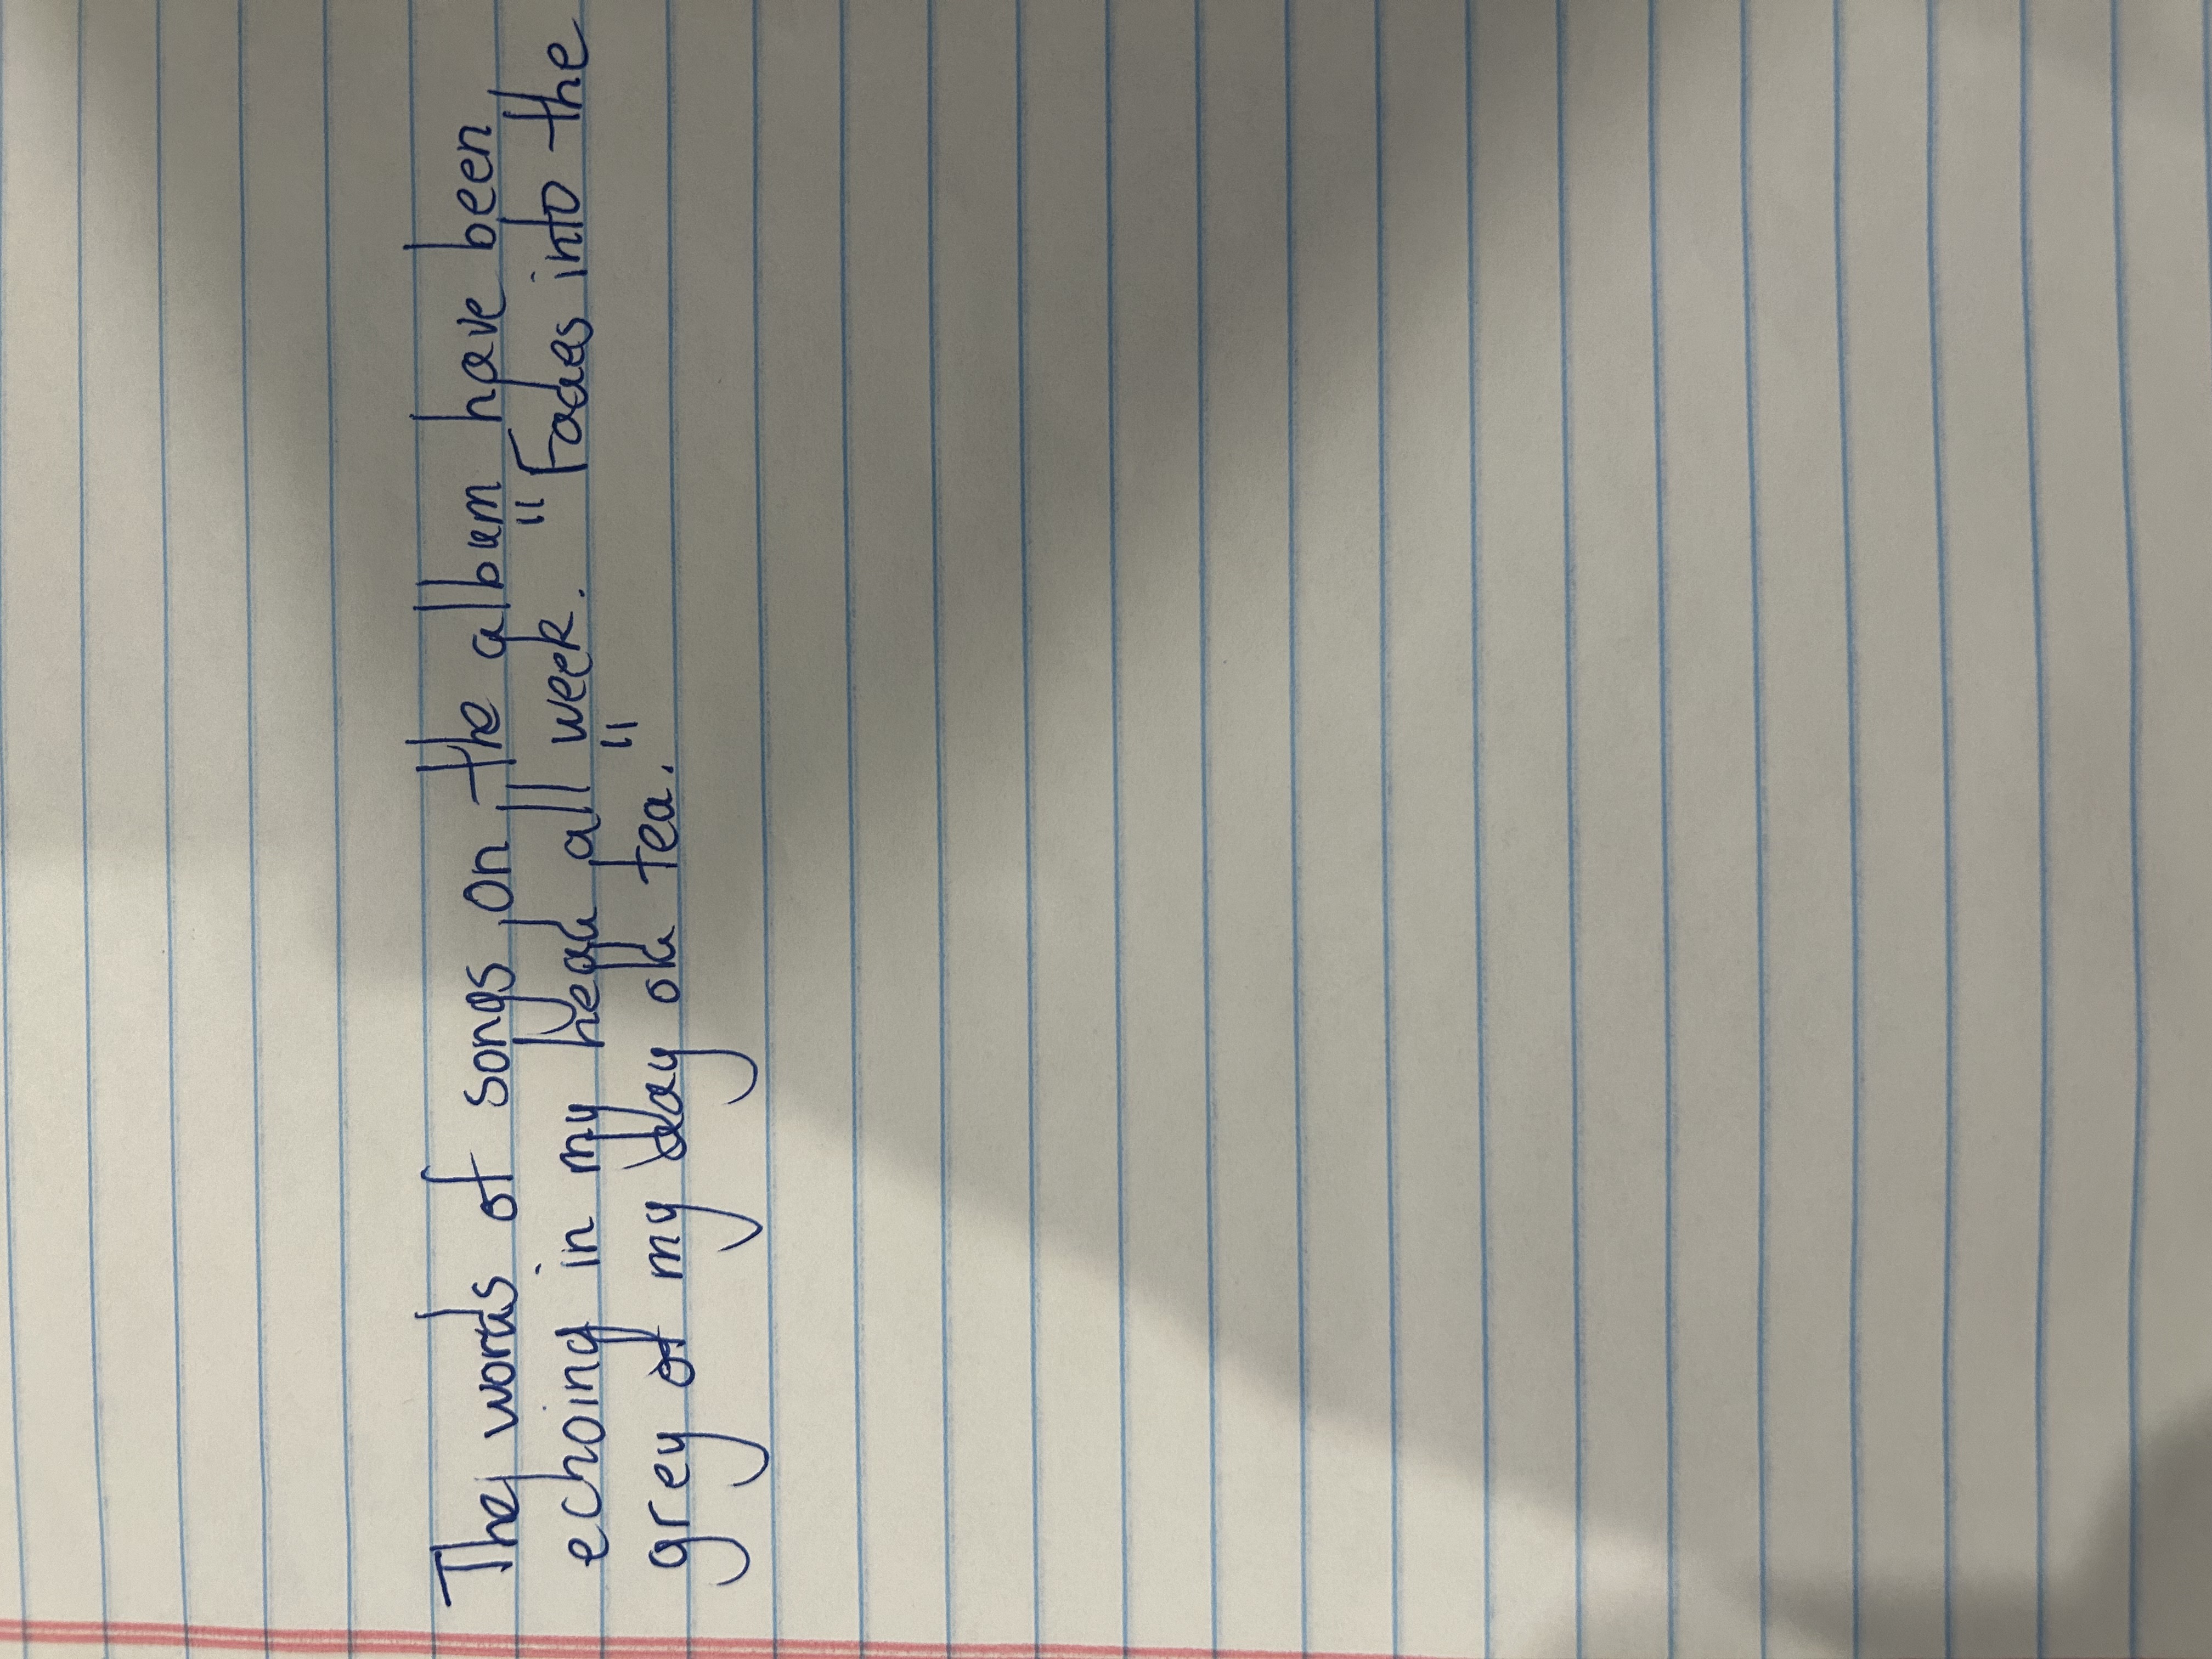 The words of songs on the album have been
echoing in my head all week. "Fades into the
grey of my day old tea."